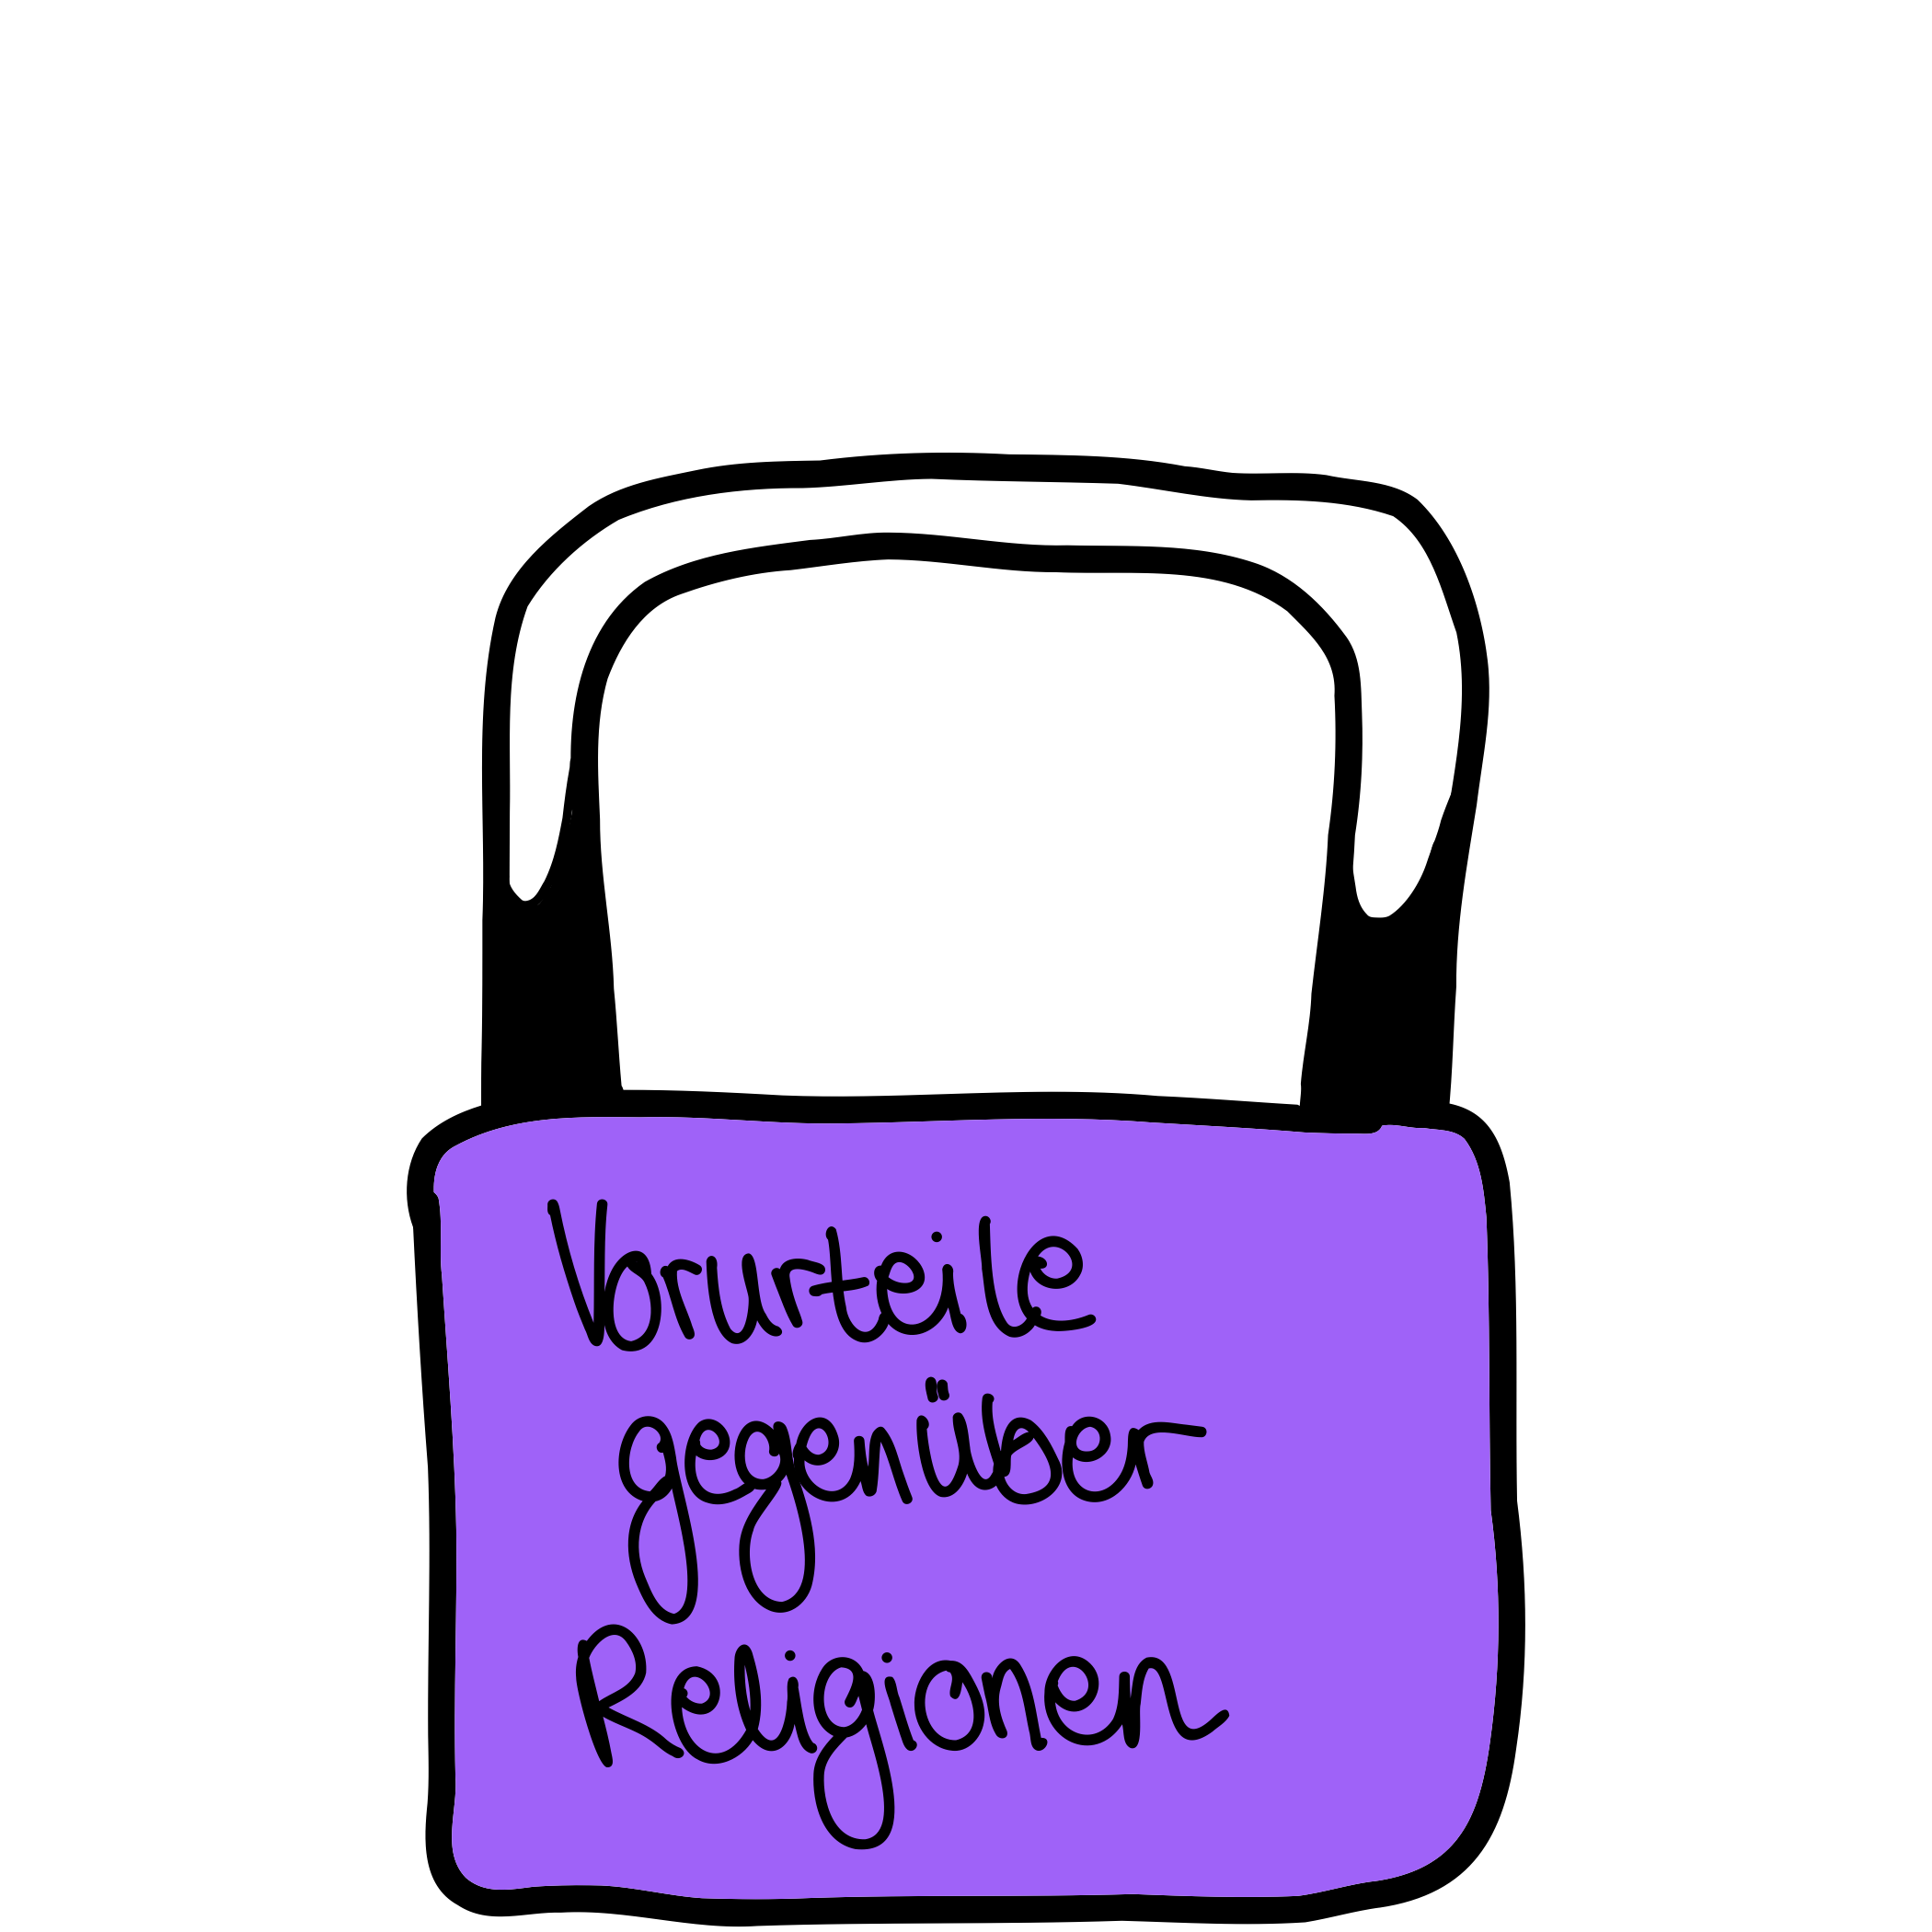 Vorurteile
gegenüber
Religionen